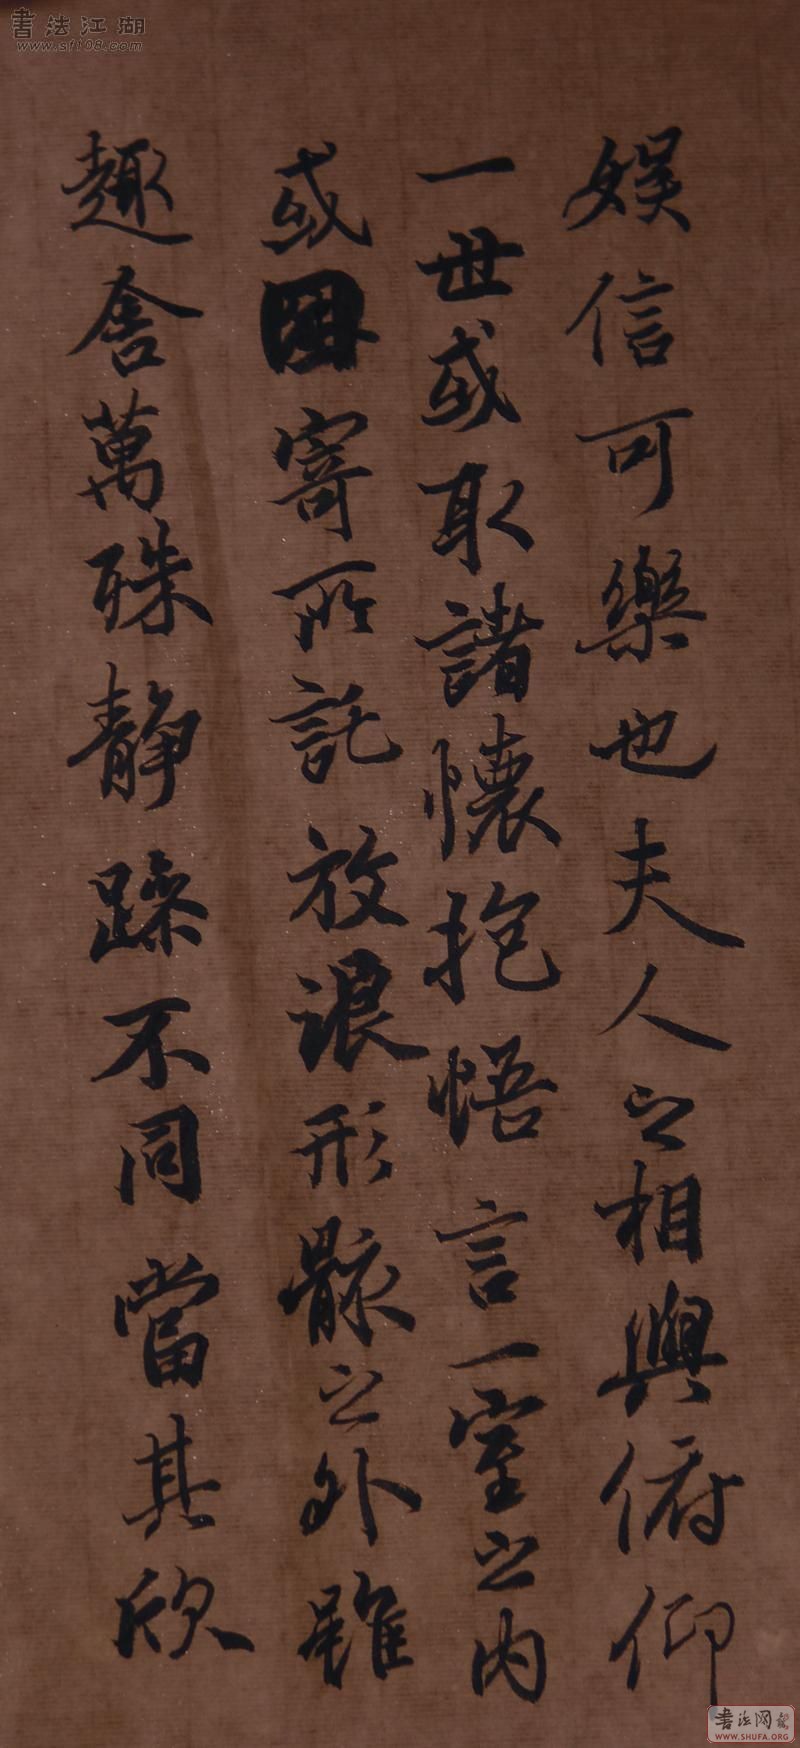 書法江湖
www.sf108.com
娱信可樂也夫人之相與俯仰
一世或取諸懷抱悟言一室之內
或因寄所託放浪形骸之外雖
趣舍萬殊静躁不同當其欣
書法网
WWW.SHUFA.ORG